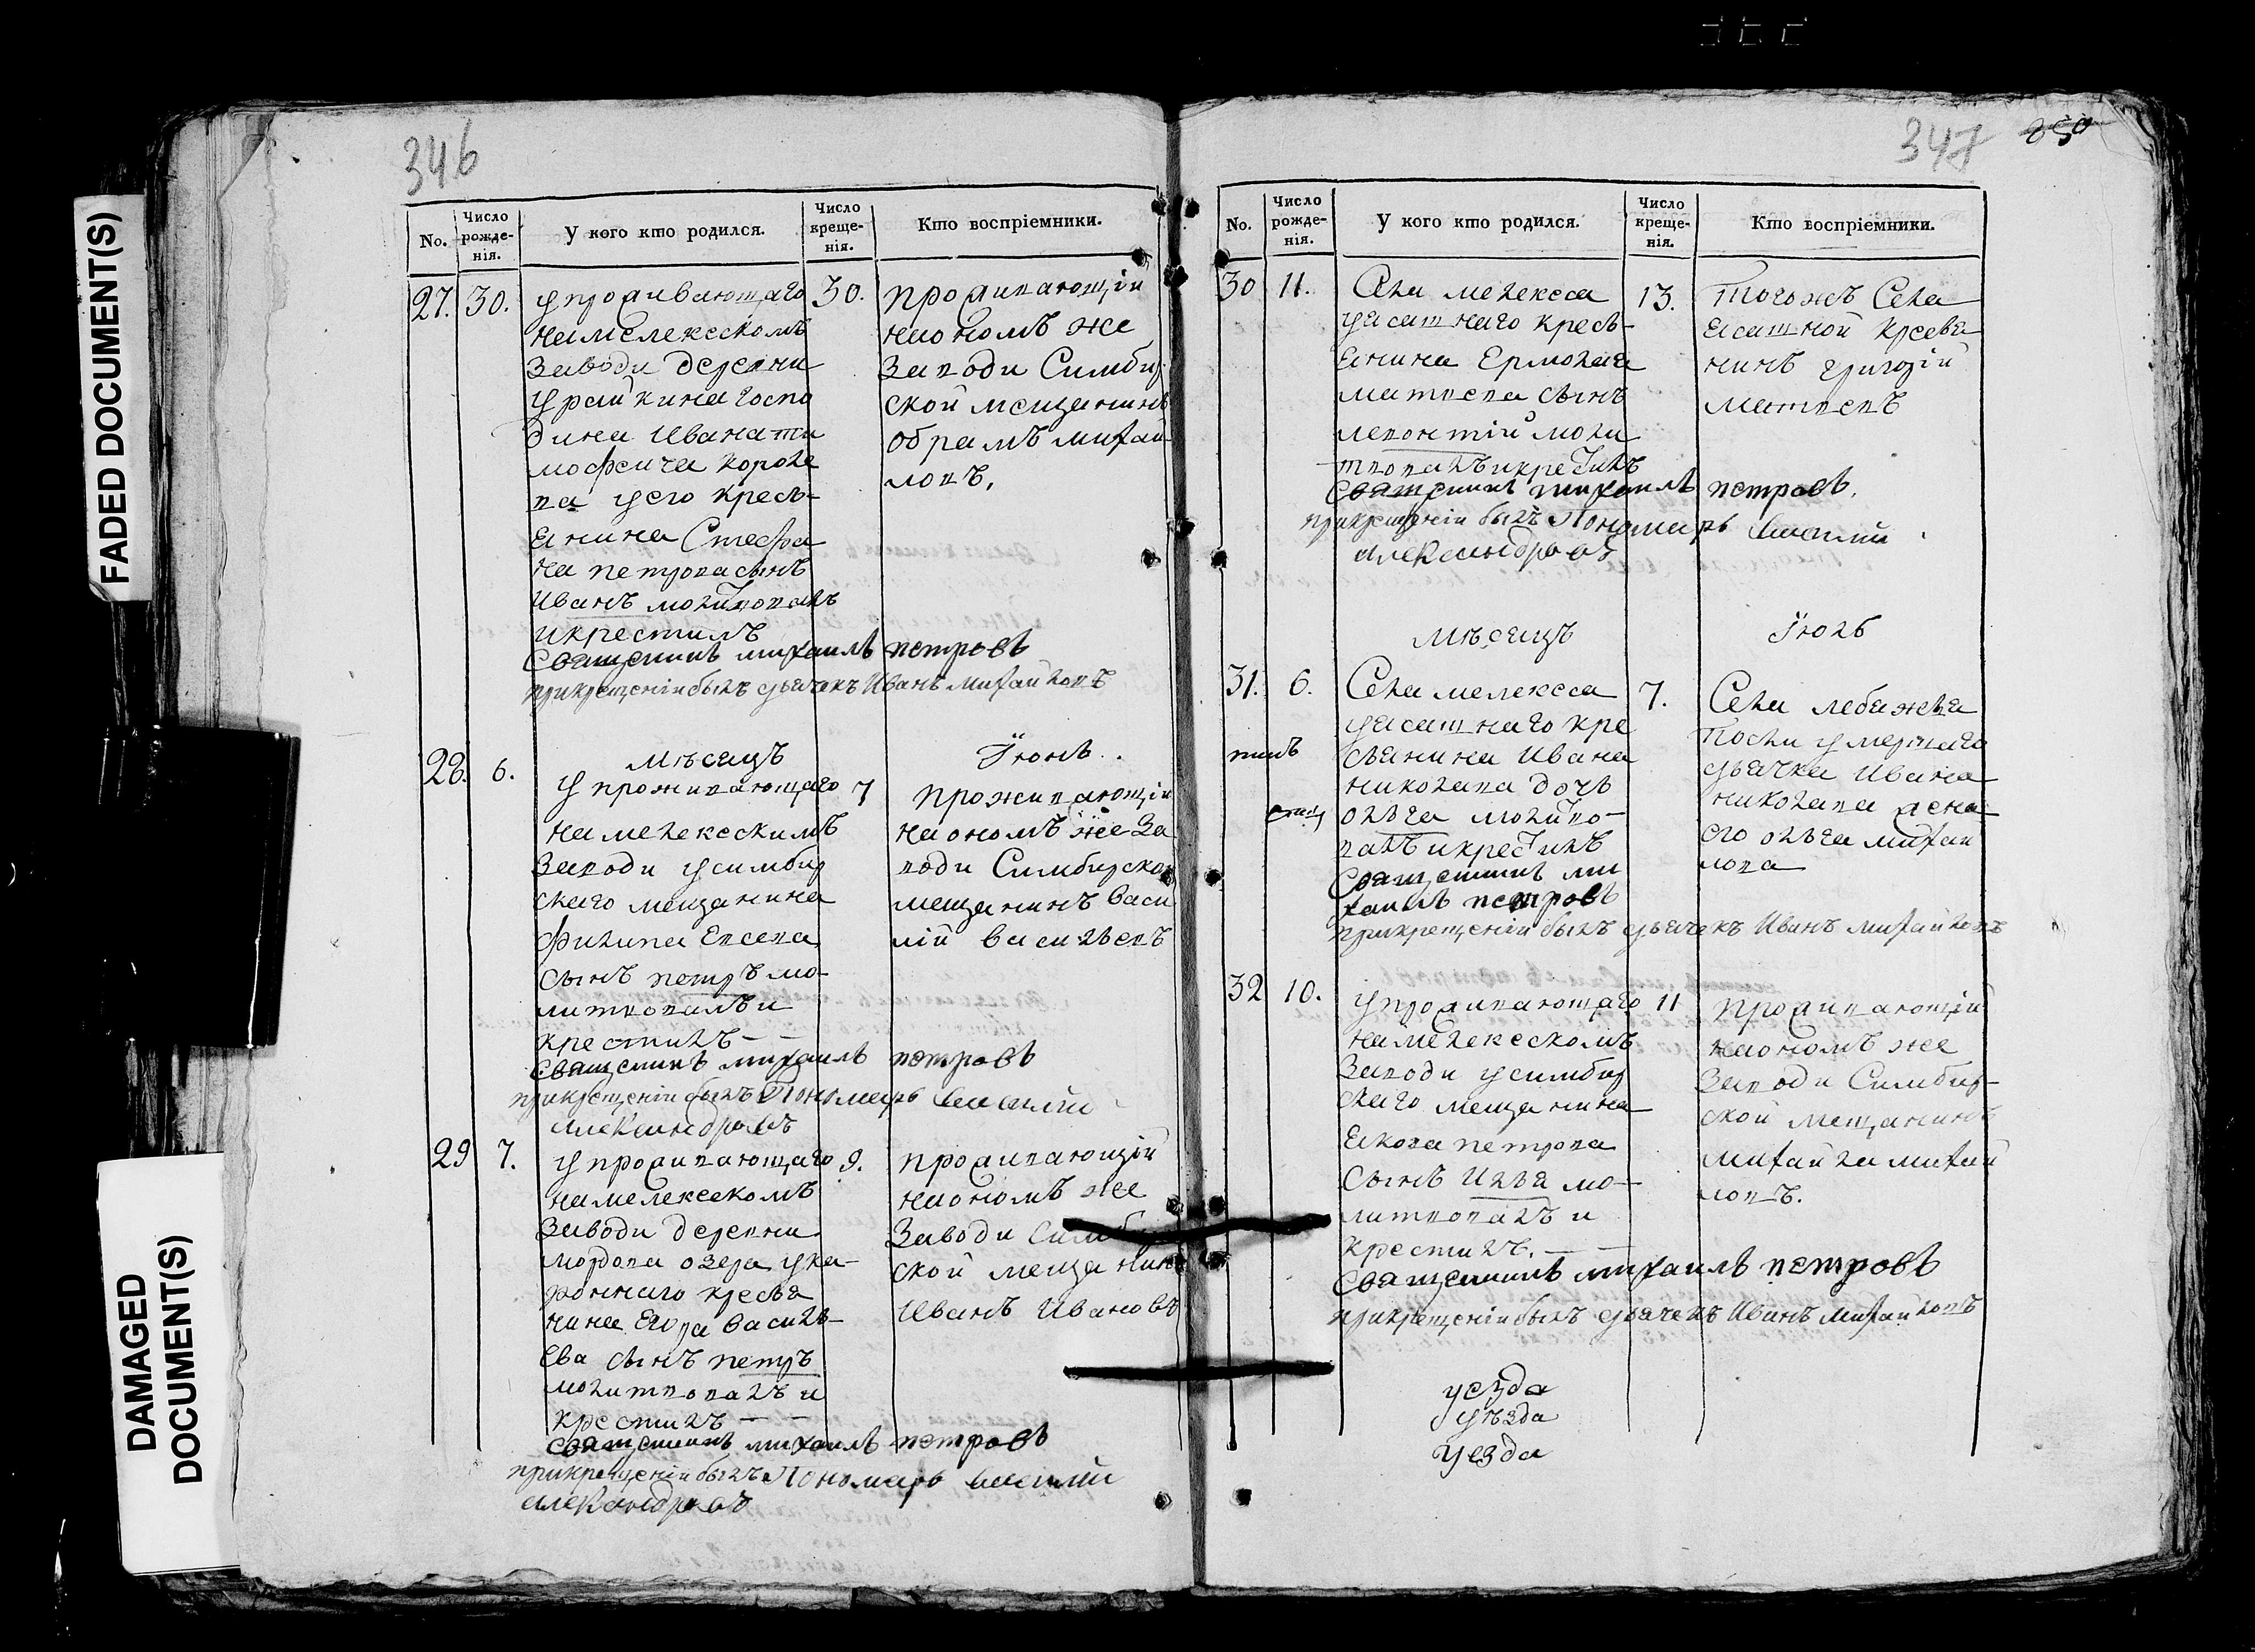 FADED DOCUMENT(S)
DAMAGED
DOCUMENT(S)
346
No.
Число рожде-нія.
У кого кто родился.
Число креще-нія.
Кто воспріемники.
27. 30.
у проживающаго
на мелекескомъ
заводи деревни
Урайкина госпо
дина Ивана ти
мофеича короле
ва у его кресь-
янина Стефа
на петрова сынъ
Иванъ молитвовалъ
и крестилъ
30.
проживающіи
на ономъ же
заводи Симбир
ской мещанинъ
обрамъ михаи
ловъ.
Священникъ михаилъ петровъ
при крещеніи былъ дьячекъ Иванъ михайловъ
мѣсяцъ Іюнь.
28. 6.
У проживающаго
на мелекескимъ
заводи у симбир
скаго мещанина
филипа Евсева
сынъ петръ мо-
литвовалъ и
крестилъ - -
7
проживающіи
на ономъ же за
води Симбирской
мещанинъ Васи
лій васильевъ
Священникъ михаилъ петровъ
при крещеніи былъ Пономарь василій
александровъ
29 7.
У проживающаго
на мелекескомъ
заводи деревни
мордова озера у ка-
зоннаго кресья
нина Егора Василь-
ева сынъ петръ
молитвовалъ и
крестилъ - -
9.
проживающій
на ономъ же
заводи Симбир
ской мещанинъ
Иванъ Ивановъ
Священникъ михаилъ петровъ
при крещеніи былъ Пономарь василій
александровъ
347 350
No.
Число рожде-нія.
У кого кто родился.
Число креще-нія.
Кто воспріемники.
30 11.
Села мелекеса
у ясашнаго кресь-
янина Ермолая
матвеева сынъ
левонтій моли
твовалъ и крестилъ
13.
Тогожъ Села
ясашной кресья
нинъ григорій
матвеевъ
Священникъ михаилъ петровъ.
при крещеніи былъ Пономарь василій
александровъ
мѣсяцъ Іюль
31. 6.
Села мелекеса
у ясашнаго кре
сьянина Ивана
николаева дочь
ольга молитво-
валъ и крестилъ
7.
Села лебяжья
после умершаго
дьячка Ивана
николаева жена
его ольга михаи
лова
Священникъ ми
хаилъ петровъ
при крещеніи былъ дьячекъ Иванъ михайловъ
32 10.
У проживающаго
на мелекескомъ
заводи у симбир
скаго мещанина
Якова петрова
сынъ Илья мо-
литвовалъ и
крестилъ. - -
11
проживающіи
на ономъ же
заводи Симбир-
ской мещанинъ
михайла михай
ловъ.
Священникъ михаилъ петровъ
при крещеніи былъ дьячекъ Иванъ михайловъ
уезда
уѣзда
уезда